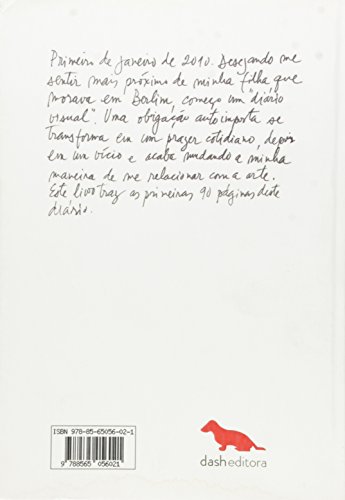 Primeiro de Janeiro de 2010. Desejando me
sentir mais próximo de minha filha que
morava em Berlim, começo um "diário
visual". Uma obrigação autoimposta se
transforma em um prazer cotidiano, depois
em um vício e acaba mudando a minha
maneira de me relacionar com a arte.
Este livro traz as primeiras 90 páginas deste
diário.
ISBN 978-85-65056-02-1
9 788565 056021
dasheditora